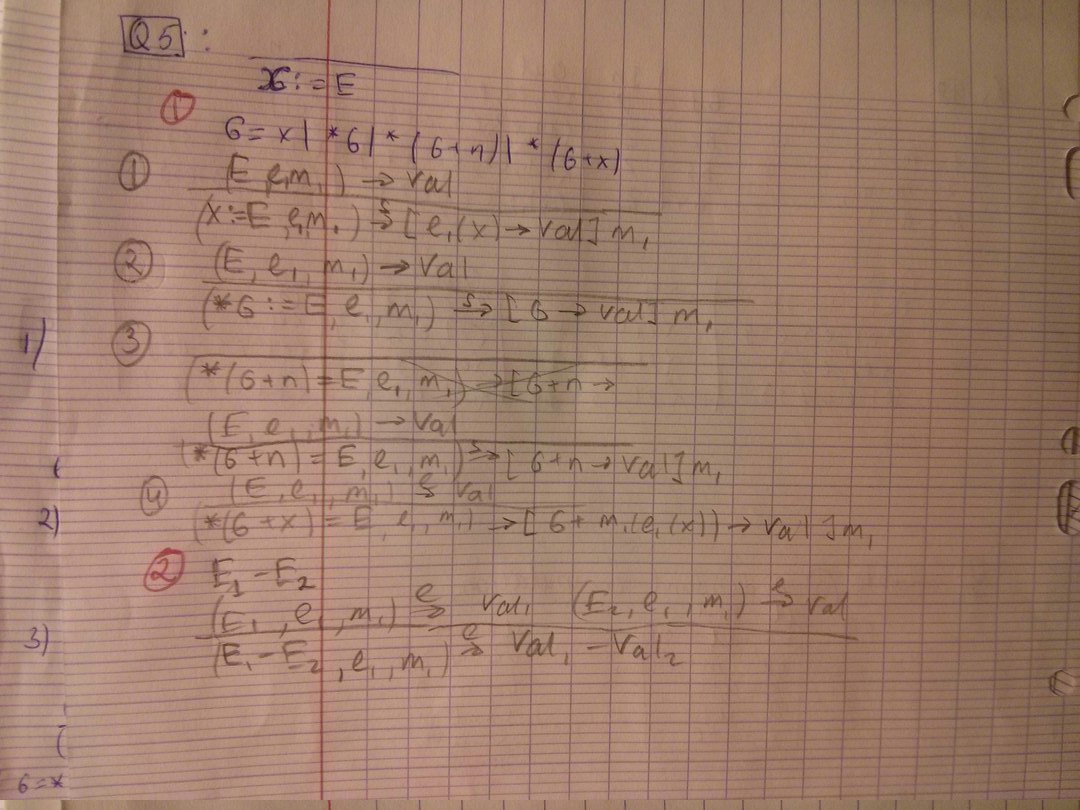 Q5 :
x6 := E
①
6 = x | *6 | *(6+n) | *(6+x)
① (E, e₁, m₁) → val
(x := E, e₁, m₁) →ˢ [e₁(x) → val] m₁
② (E, e₁, m₁) → val
(*6 := E, e₁, m₁) →ˢ [6 → val] m₁
1) ③
(*(6+n) = E, e₁, m₁) → [6+n →
(E, e₁, m₁) → val
(*(6+n) = E, e₁, m₁) →ˢ [6+n → val] m₁
④ (E, e₁, m₁) →ᵉ val
2) (*(6+x) = E, e₁, m₁) → [6 + m₁(e₁(x)) → val] m₁
② E₁ - E₂
(E₁, e₁, m₁) →ᵉ val₁ (E₂, e₁, m₁) →ᵉ val
3) (E₁ - E₂, e₁, m₁) →ᵉ val₁ - val₂
6 = *